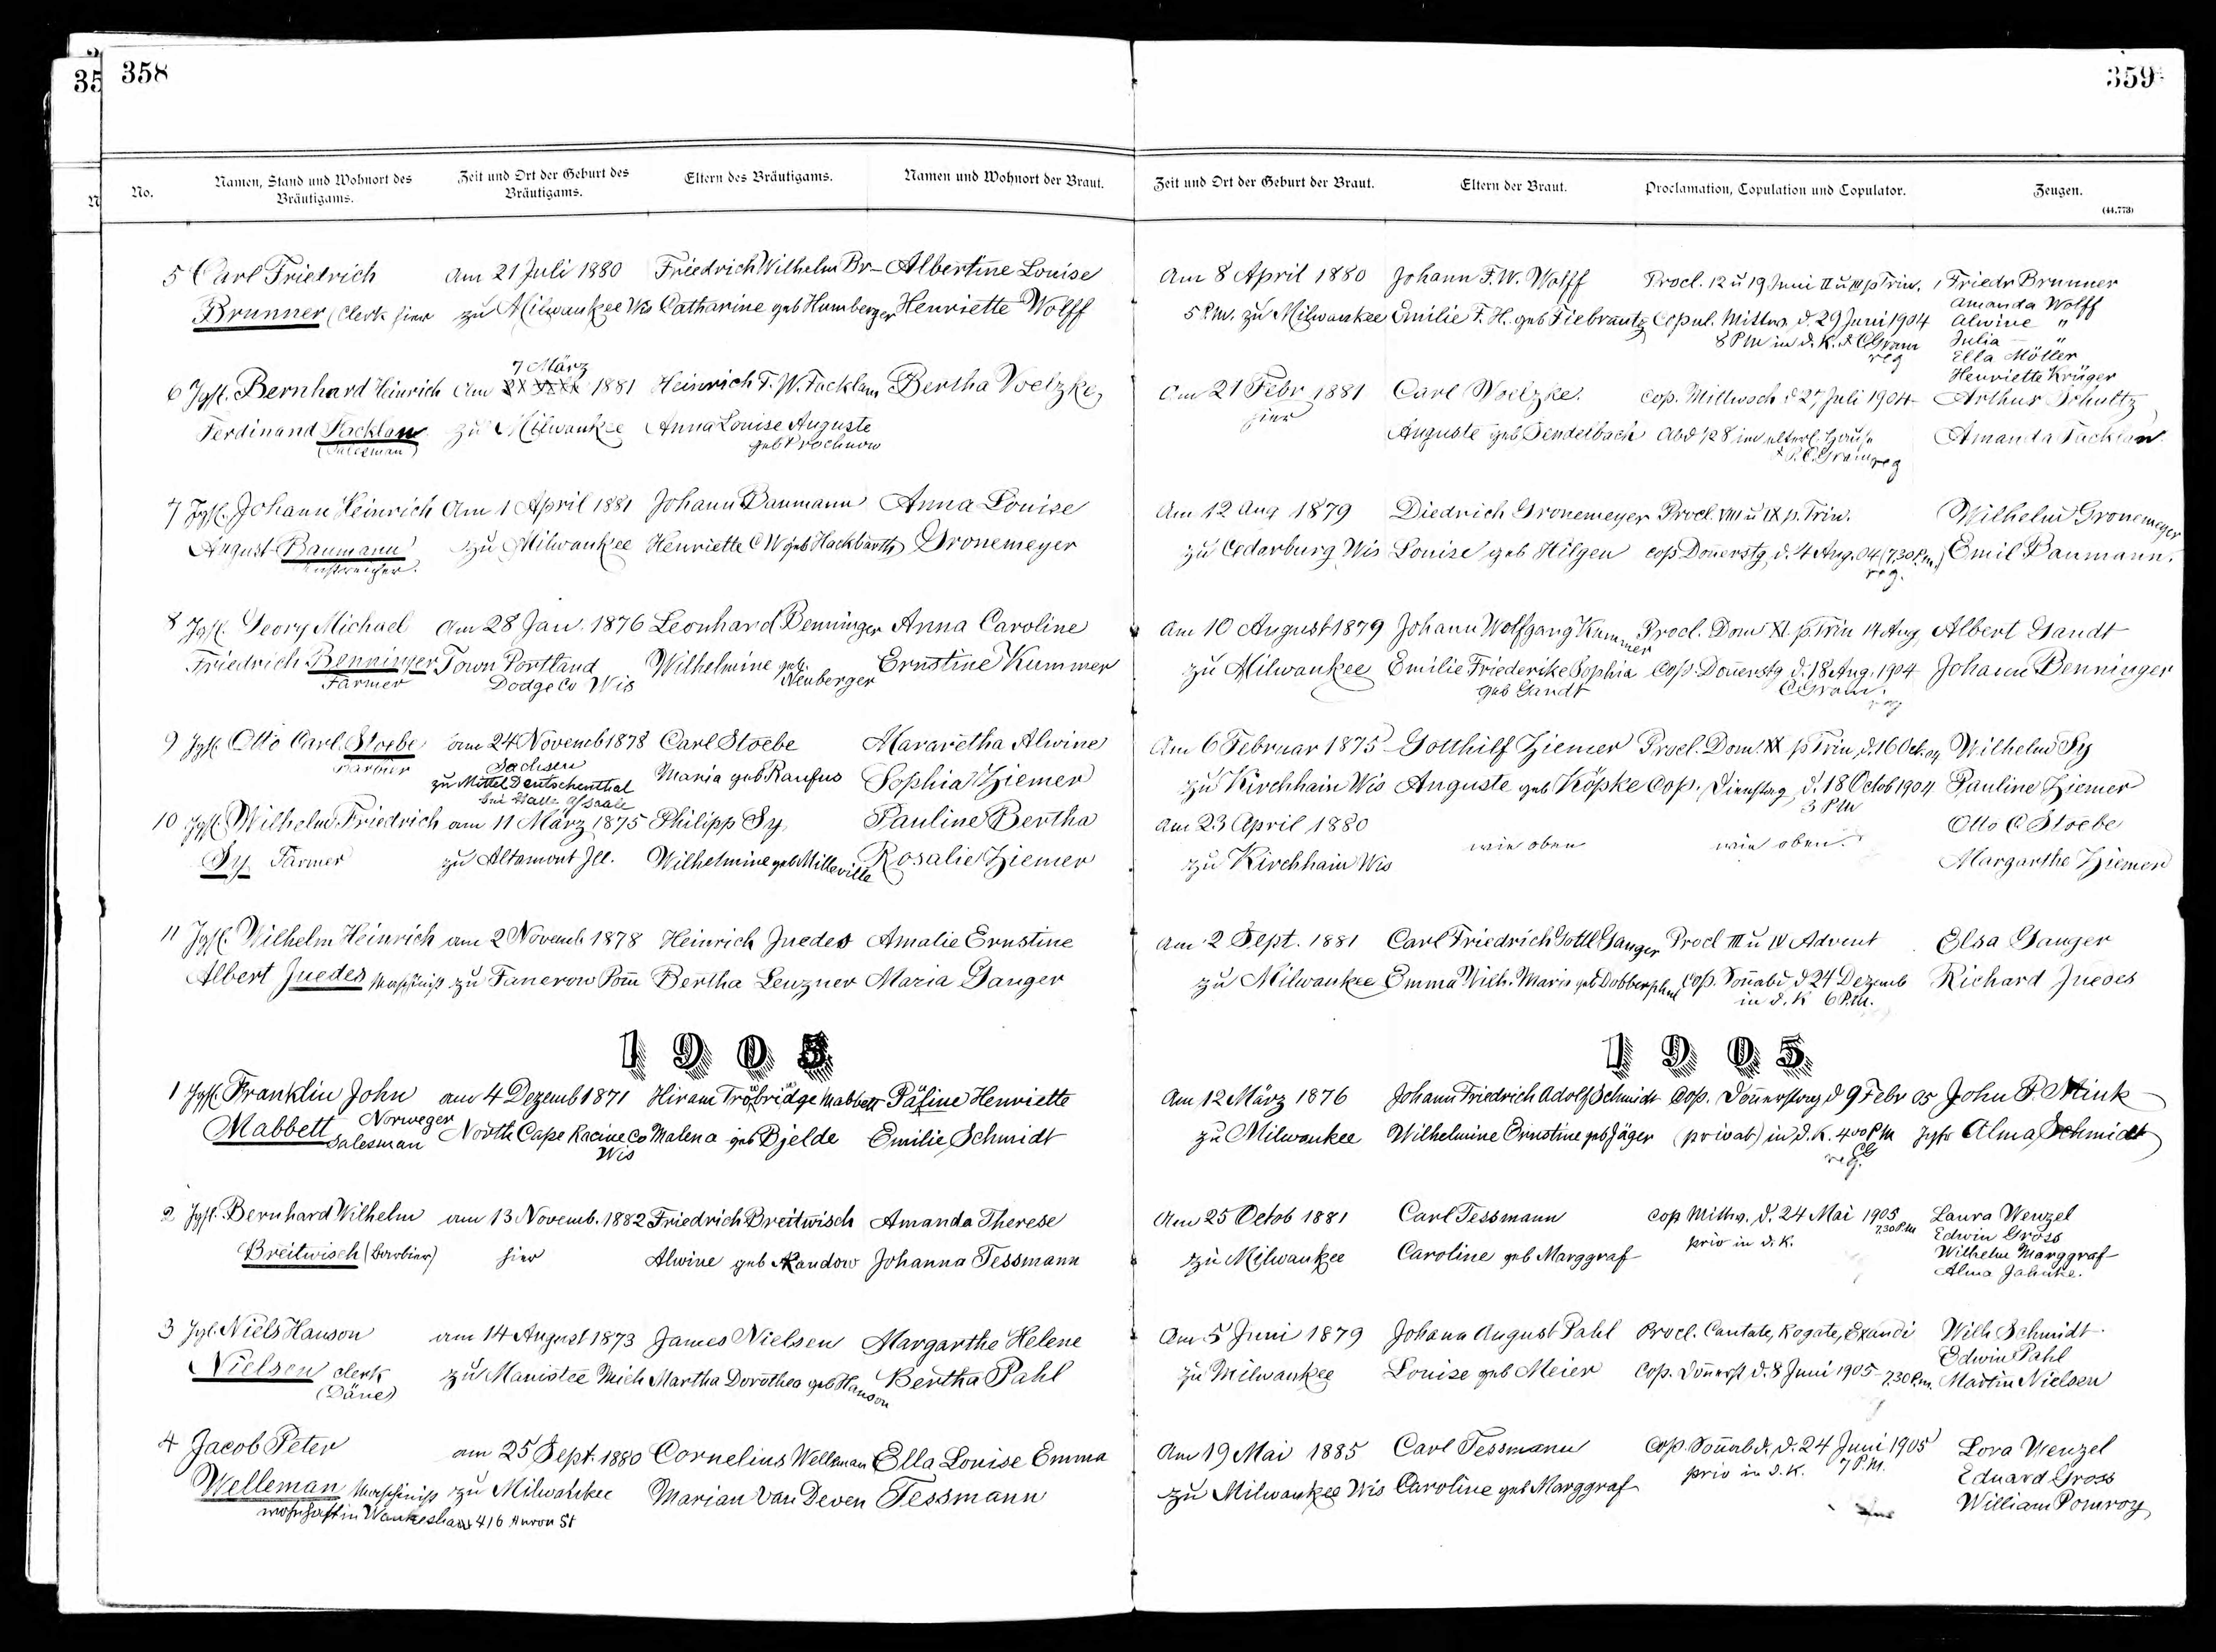 358
359
35
No.
Namen, Stand und Wohnort des Bräutigams.
Zeit und Ort der Geburt des Bräutigams.
Eltern des Bräutigams.
Namen und Wohnort der Braut.
Zeit und Ort der Geburt der Braut.
Eltern der Braut.
Proclamation, Copulation und Copulator.
Zeugen.
(44.773)
5 Carl Friedrich am 21 Juli 1880 Friedrich Wilhelm Br– Albertine Louise
Brunner (Clerk hier zu Milwaukee Wis Catharine geb Humberger Henriette Wolff
Am 8 April 1880 Johann F. W. Wolff Procl. 12 u 19 Juni II u III p Trin. Friedr Brunner
Amanda Wolff
5 P.M. zu Milwaukee Emilie F. H. geb Fiebrantz Copul. Mittw. d. 29 Juni 1904 Alwine "
8 PM in d. K. d CGram Julia "
reg Ella Möller
Henriette Krüger
7 März
6 Jgsl. Bernhard Heinrich am 1881 Heinrich F. W. Facklam Bertha Voelzke
Ferdinand Facklam zu Milwaukee Anna Louise Auguste
(Salesman) geb Prochnow
Am 21 Febr 1881 Carl Voelzke Cop. Mittwoch d 27 Juli 1904 Arthur Schultz
hier Auguste geb Sendelbach Abd ½8 im elterl. Hause Amanda Facklam
d. P. C. Gram reg
7 Jgsl. Johann Heinrich am 1 April 1881 Johann Baumann Anna Louise
August Baumann zu Milwaukee Henriette C W geb Hackbarth Gronemeyer
Anstreicher.
Am 12 Aug 1879 Diedrich Gronemeyer Procl. VIII u IX p. Trin. Wilhelm Gronemeyer
zu Cedarburg Wis Louise geb Hilgen cop Donerstg d. 4 Aug. 04 (7.30 P.m.) Emil Baumann.
reg.
8 Jgsl. Georg Michael am 28 Jan. 1876 Leonhard Benninger Anna Caroline
Friedrich Benninger Town Portland Wilhelmine geb. Neuberger Ernstine Kummer
Farmer Dodge Co Wis
am 10 August 1879 Johann Wolfgang Kummer Procl. Dom XI. p Trin 14 Aug Albert Gandt
zu Milwaukee Emilie Friederike Sophia Cop. Donerstg d. 18 Aug. 1904 Johann Benninger
geb Gandt CGram. reg
9 Jgsl. Otto Carl Stoebe am 24 Novemb 1878 Carl Stoebe Mararetha Alwine
Farmer Sachsen
zu Mittel Deutschenthal Maria geb Raufus Sophia Ziemer
bei Halle a/Saale
Am 6 Februar 1875 Gotthilf Ziemer Procl. Dom. XX p Trin, d. 16 Oct. 04 Wilhelm Sy
zu Kirchhain Wis Auguste geb Köpke Cop. Dienstag d. 18 Octob 1904 Pauline Ziemer
3 PM
10 Jgsl. Wilhelm Friedrich am 11 März 1875 Philipp Sy Pauline Bertha
Sy. Farmer zu Altamont Ill. Wilhelmine geb Milleville Rosalie Ziemer
am 23 April 1880 wie oben wie oben. Otto C Stoebe
zu Kirchhain Wis Margarthe Ziemer
11 Jgsl. Wilhelm Heinrich am 2 Novemb 1878 Heinrich Juedes Amalie Ernstine
Albert Juedes Maschinist zu Tanerow Pom Bertha Lenzner Maria Ganger
am 2 Sept. 1881 Carl Friedrich Gottl Ganger Procl III u IV Advent Elsa Ganger
zu Milwaukee Emma Wilh. Maria geb Dobberphul Cop. Sonabd d 24 Dezemb Richard Juedes
in d. K 6 P.M.
1905
1905
1 Jgsl. Franklin John am 4 Dezemb 1871 Hiram Trobridge Mabbett Päsine Henriette
Mabbett Norweger North Cape Racine Co Malena geb Bjelde Emilie Schmidt
Salesman Wis
Am 12 März 1876 Johann Friedrich Adolf Schmidt Cop. Donnerstag d 9 Febr 05 John P. Mink
zu Milwaukee Wilhelmine Ernstine geb Jäger (privat) in d. K. 4 00 PM Jgfr Alma Schmidt
CG
reg.
2 Jgsl. Bernhard Wilhelm am 13 Novemb. 1882 Friedrich Breitwisch Amanda Therese
Breitwisch (Barbier) hier Alwine geb Randow Johanna Tessmann
Am 25 Octob 1881 Carl Tessmann cop Mittw. d. 24 Mai 1905 7.30 P.M Laura Wenzel
Edwin Gross
zu Milwaukee Caroline geb Marggraf priv in d. K. Wilhelm Marggraf
Alma Jahnke.
3 Jgl. Niels Hanson am 14 August 1873 James Nielsen Margarthe Helene
Nielsen clerk zu Manistee Mich Martha Dorothea geb Hanson Bertha Pahl
(Däne)
Am 5 Juni 1879 Johann August Pahl Procl. Cantate, Rogate, Exaudi Wilh Schmidt
Edwin Pahl
zu Milwaukee Louise geb Meier Cop. Donerst d. 8 Juni 1905 7.30 P.m. Martin Nielsen
4 Jacob Peter am 25 Sept. 1880 Cornelius Welleman Ella Louise Emma
Welleman Maschinist zu Milwaukee Marian Van Deven Tessmann
wohnhaft in Waukesha 416 Huron St
Am 19 Mai 1885 Carl Tessmann Cop. Sonabd. d. 24 Juni 1905 Lora Wenzel
priv in d. K. 7 P.M. Eduard Gross
zu Milwaukee Wis Caroline geb Marggraf William Pomroy